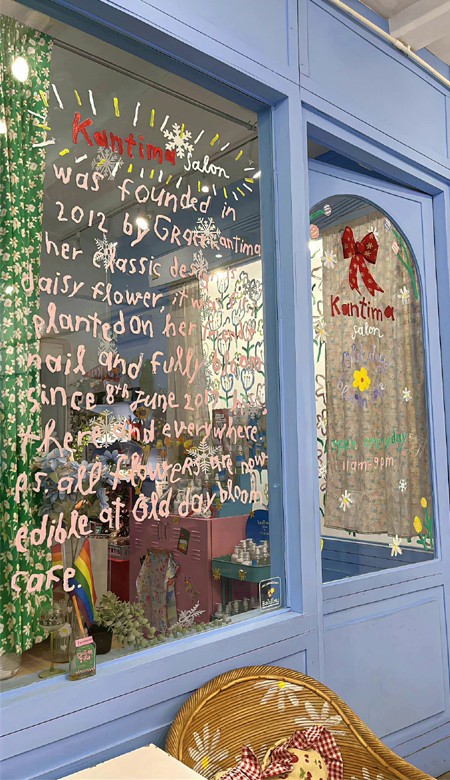 Kantima salon
was founded in
2012 by Grace Kantima
her classic design is
daisy flower, it was
planted on her friend's
nail and fully bloom
since 8th June 2012
there and everywhere
As all flowers are now
edible at Old day bloom
cafe.
Kantima
salon
Old day
bloom
everyday
11am-9pm